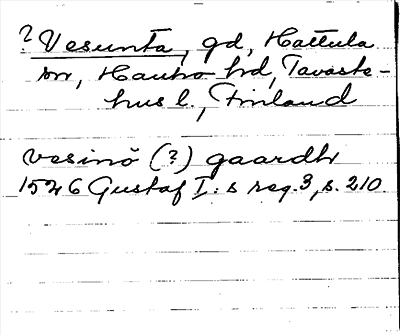 ? Vesunta, gd, Hattula
sn, Hauho hd, Tavaste-
hus l., Finland
vesinö (?) gaardh
1526 Gustaf I:s reg. 3, s. 210